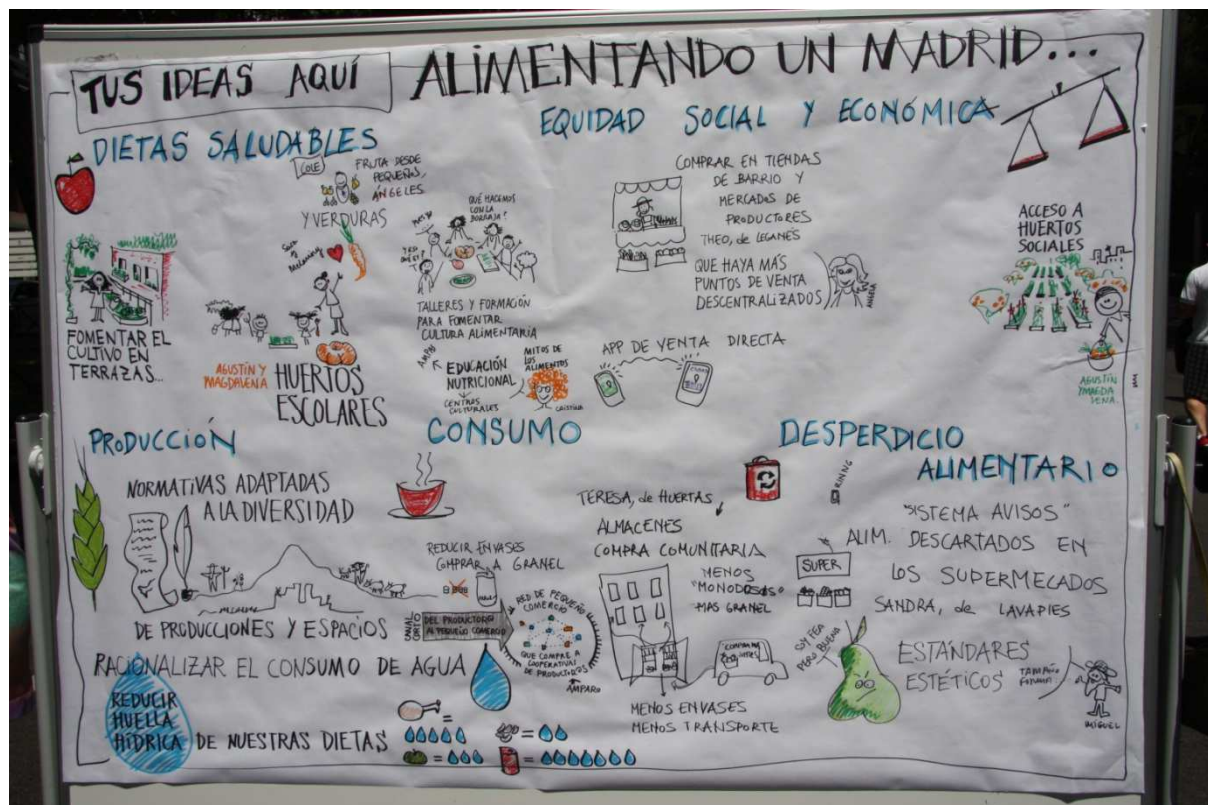 TUS IDEAS AQUÍ
ALIMENTANDO UN MADRID...
DIETAS SALUDABLES
COLE
FRUTA DESDE
PEQUEÑOS,
ÁNGELES
Y VERDURAS
FOMENTAR EL
CULTIVO EN
TERRAZAS...
AGUSTÍN Y
MAGDALENA
HUERTOS
ESCOLARES
QUÉ HACEMOS
CON LA
BORRAJA?
TALLERES Y FORMACIÓN
PARA FOMENTAR
CULTURA ALIMENTARIA
AMPAS
EDUCACIÓN
NUTRICIONAL
CENTROS
CULTURALES
MITOS DE
LOS
ALIMENTOS
CRISTINA
EQUIDAD SOCIAL Y ECONÓMICA
COMPRAR EN TIENDAS
DE BARRIO Y
MERCADOS DE
PRODUCTORES
THEO, de LEGANÉS
QUE HAYA MÁS
PUNTOS DE VENTA
DESCENTRALIZADOS
APP DE VENTA DIRECTA
ACCESO A
HUERTOS
SOCIALES
AGUSTÍN
Y MAGDA
LENA.
PRODUCCIÓN
NORMATIVAS ADAPTADAS
A LA DIVERSIDAD
DE PRODUCCIONES Y ESPACIOS
RACIONALIZAR EL CONSUMO DE AGUA
REDUCIR
HUELLA
HÍDRICA DE NUESTRAS DIETAS
=
= 
=
=
CONSUMO
REDUCIR ENVASES
COMPRAR A GRANEL
CANAL
CORTO
DEL PRODUCTOR@
AL PEQUEÑO COMERCIO
RED DE PEQUEÑO
COMERCIO
QUE COMPRE A
COOPERATIVAS
DE PRODUCTOR@S
AMPARO
TERESA, de HUERTAS
ALMACENES
COMPRA COMUNITARIA
MENOS
"MONODOSIS"
MAS GRANEL
MENOS ENVASES
MENOS TRANSPORTE
DESPERDICIO
ALIMENTARIO
"SISTEMA AVISOS"
ALIM. DESCARTADOS EN
LOS SUPERMECADOS
SANDRA, de LAVAPIES
SUPER
SOY FEA
PERO BUENA
ESTÁNDARES
ESTÉTICOS
TAMAÑO
MIGUEL